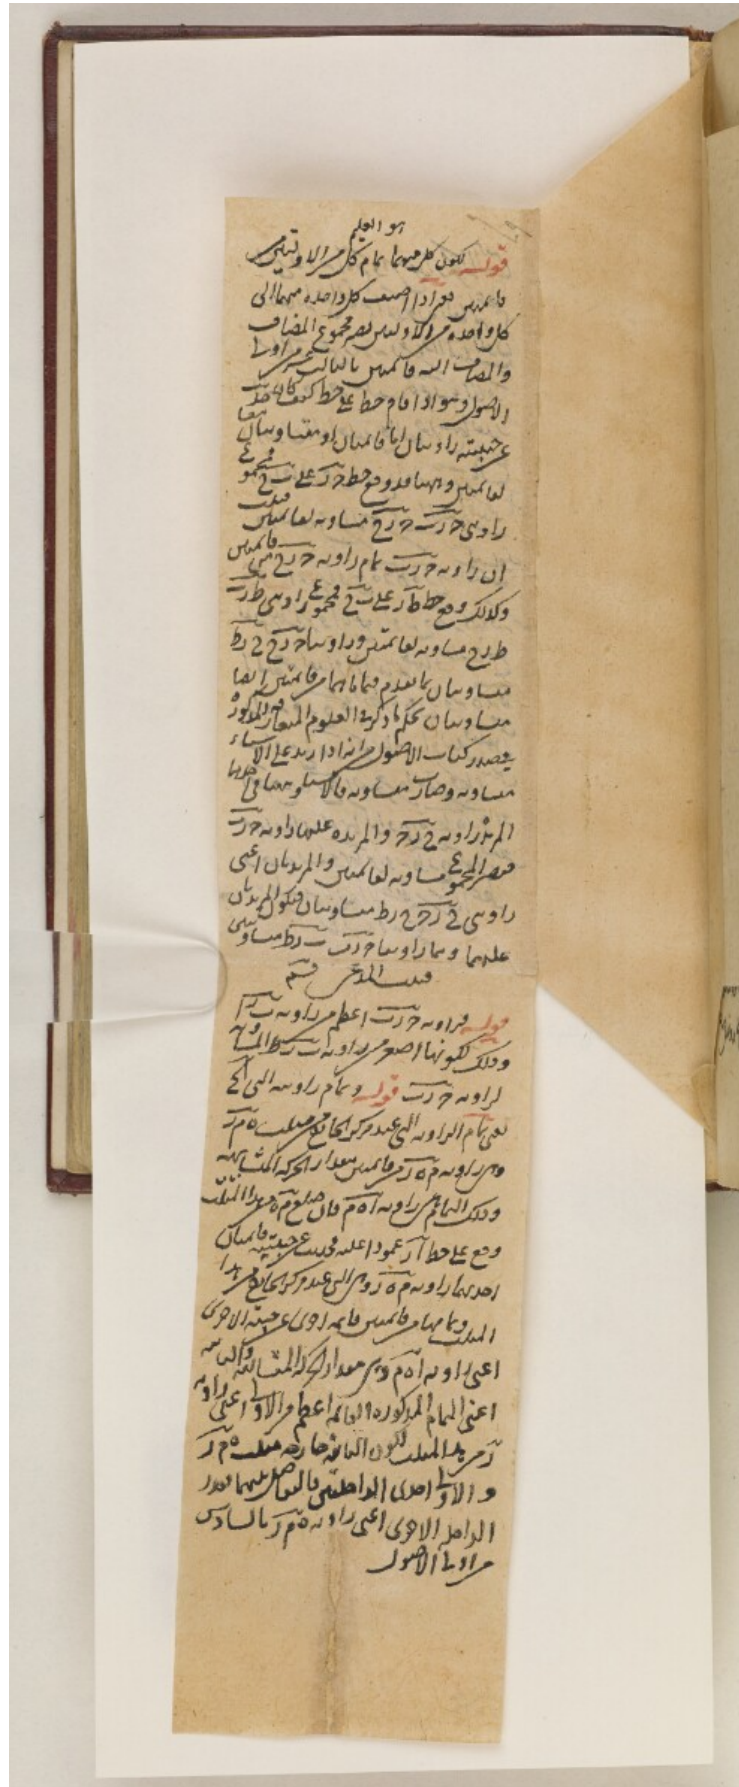 هو العليم
قوله لكون كل منهما تمام كل من الاوليين من
قائمتين يعني اذا اضيف كل واحدة منهما الى
كل واحدة من الاوليين يصير مجموع المضاف
والمضاف اليه قائمتين بالثالث عشر من اولى
الاصول وهو اذا قام خط على خط كيف كان حدث
عن جنبتيه زاويتان اما قائمتان او متساويتان معا
لقائمتين وههنا قد وقع خط حر على ب ح فمجموع
زاويتي حرب حرح مساوية لقائمتين فثبت
ان زاوية حرب تمام زاوية حرح من قائمتين
وكذلك وقع خط طر على ب ح فمجموع زاويتي طرب
طرح مساوية لقائمتين وزاويتا حرح ح رط
متساويتان بما تقدم فتماماهما من قائمتين ايضا
متساويتان بحكم ما ذكر في العلوم المتعارفة المذكورة
في صدر كتاب الاصول من انه اذا زيد على الاشياء
متساوية وصارت متساوية فالاشياء
المزيد زاوية ح رح والمزيدة عليها زاوية حرب
فيصير المجموع مساوية لقائمتين والمزيدتان اعني
زاويتي ح رح ح رط متساويتان فيكون المزيدتان
عليهما وهما زاويتا حرب ب رط متساويتين
فثبت المدعى فتم
قوله فزاوية حرب اعظم من زاوية ب ر ا
وذلك لكونها اصغر من زاوية ب رط المساوية
لزاوية حرب قوله وتمام زاويته التي الخ
يعني تمام الزاوية التي عند مركز الخارج من مثلث ه م ر
وهي زاوية م ه ر من قائمتين بمقدار الحركة المتشابهة
وذلك التمام هي زاوية ا ه م فان ضلع م ه من هذا المثلث
وقع على خط ا ر عمودا عليه فحدثت عن جنبتيه قائمتان
احديهما زاوية م ه ر وهي التي عند مركز الخارج من هذا
المثلث وتمامها من قائمتين قائمة اخرى عن جنبته الاخرى
اعني زاوية ا ه م وهي مقدار الحركة المتشابهة والثانية
اعني التمام المذكورة القائمة اعظم من الاولى اعني زاوية
ر من هذا المثلث لكون الثانية خارجة مثلث ه م ر
والاولى احدى الداخلتين فالتفاضل بينهما بقدر
الداخلة الاخرى اعني زاوية ه م ر بالسادس
من اولى الاصول